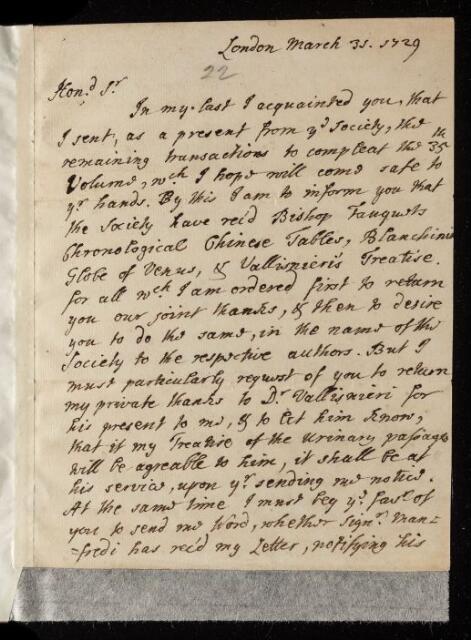 London March 31. 1729
22
Hon.d S.r
In my last I acquainted you, that
I sent, as a present from y.r Society, the
remaining transactions to compleat the 35th
Volume, w.ch I hope will come safe to
y.r hands. By this I am to inform you that
the Society have rec'd Bishop Fauquets
Chronological Chinese Tables, Blanchinis
Globe of Venus, & Vallisnieri's Treatise.
for all w.ch I am ordered first to return
you our joint thanks, & then to desire
you to do the same, in the name of the
Society to the respective authors. But I
must particularly request of you to return
my private thanks to D.r Vallisnieri for
his present to me, & to let him know,
that if my Treatise of the Urinary passages
will be agreable to him, it shall be at
his service, upon y.r sending me notice.
At the same time I must beg y.e fav.r of
you to send me Word, whether Sign.r Man=
=fredi has rec'd my Letter, notifying his